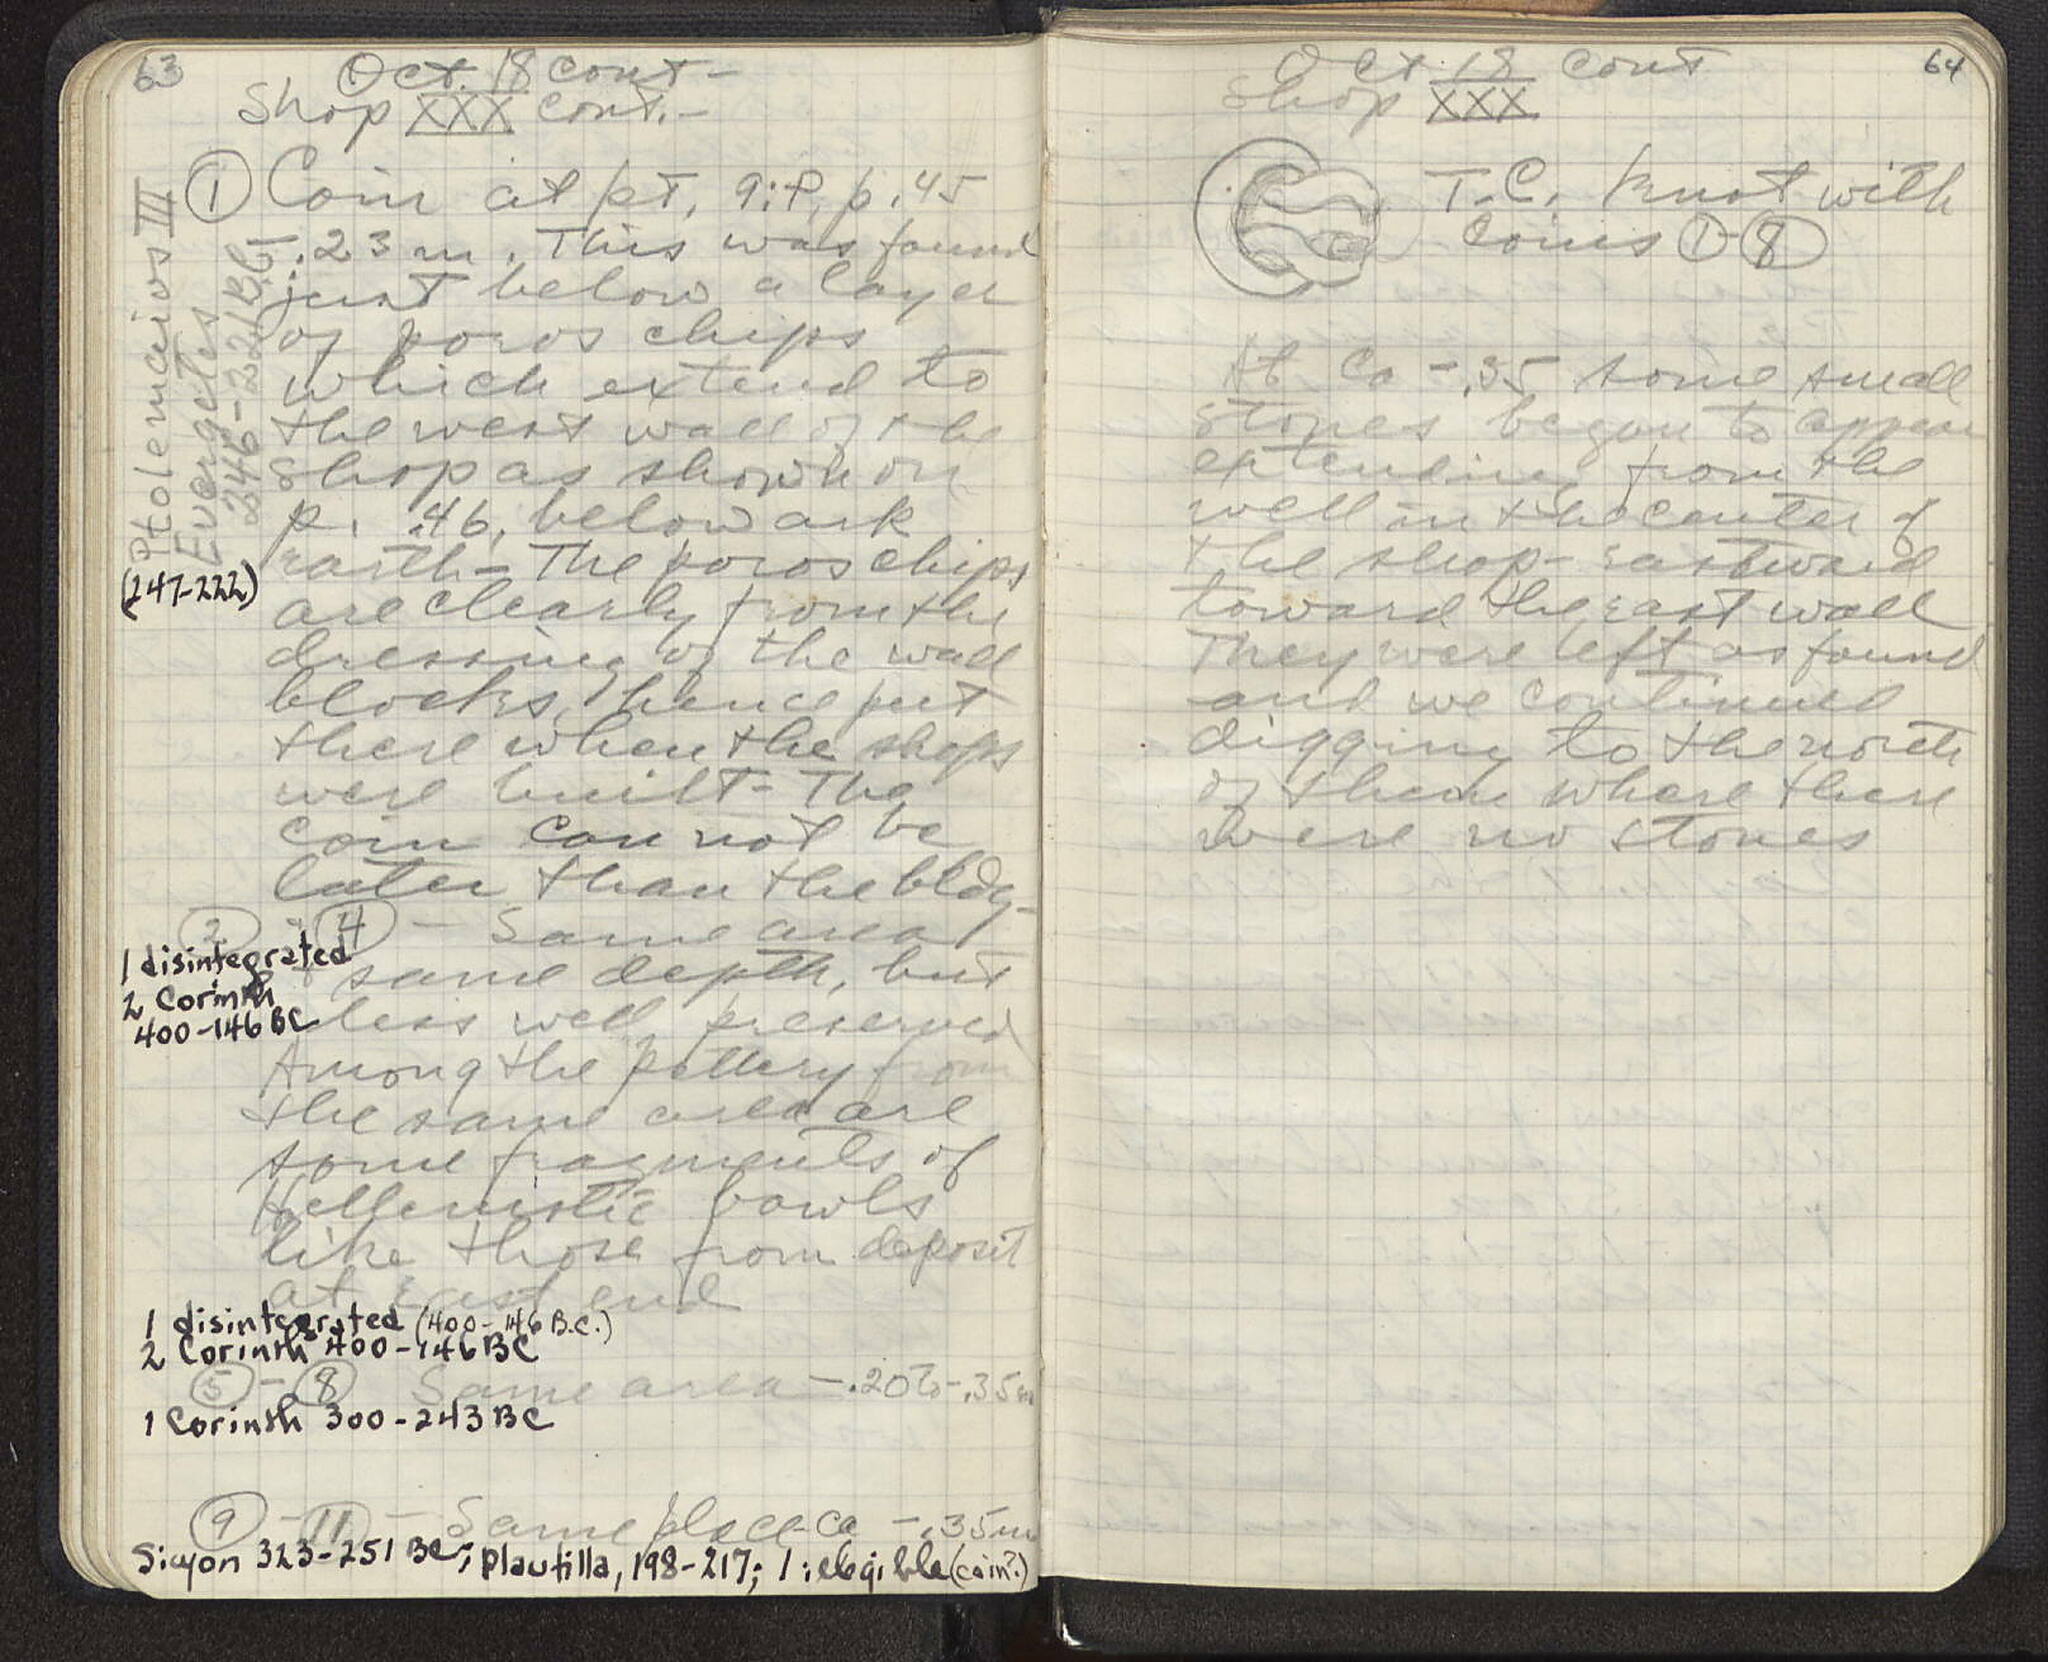 63
Oct. 18 cont -
Shop XXX cont. -
① Coin at pt. 9:P, p. 45
-.23 m. This was found
just below a layer
of poros chips
which extend to
the west wall of the
shop as shown on
p. 46, below
earth - The poros chips
are clearly from the
dressing of the wall
blocks, hence put
there when the shops
were built - The
coin can not be
later than the bldg -
Ptolemaios III
Evergetes
246-221 B.C.
(247-222)
② - ④ - Same area
same depth, but
less well preserved
1 disintegrated
2 Corinth
400-146 BC
Among the pottery from
the same area are
some fragments of
Hellenistic bowls
like those from deposit
at east end
1 disintegrated (400-146 B.C.)
2 Corinth 400-146 BC
⑤ - ⑧ Same area -.20 to -.35m
1 Corinth 300-243 BC
⑨ - ⑪ - Same place ca -.35m
Sicyon 323-251 BC; Plautilla, 198-217; 1 illegible (coin?)
64
Oct 18 cont
Shop XXX
T.C. knot with
Coins ①-⑧
At ca -.35 some small
stones began to appear
extending from the
well in the center of
the shop - eastward
toward the east wall
They were left as found
and we continued
digging to the north
of them where there
were no stones